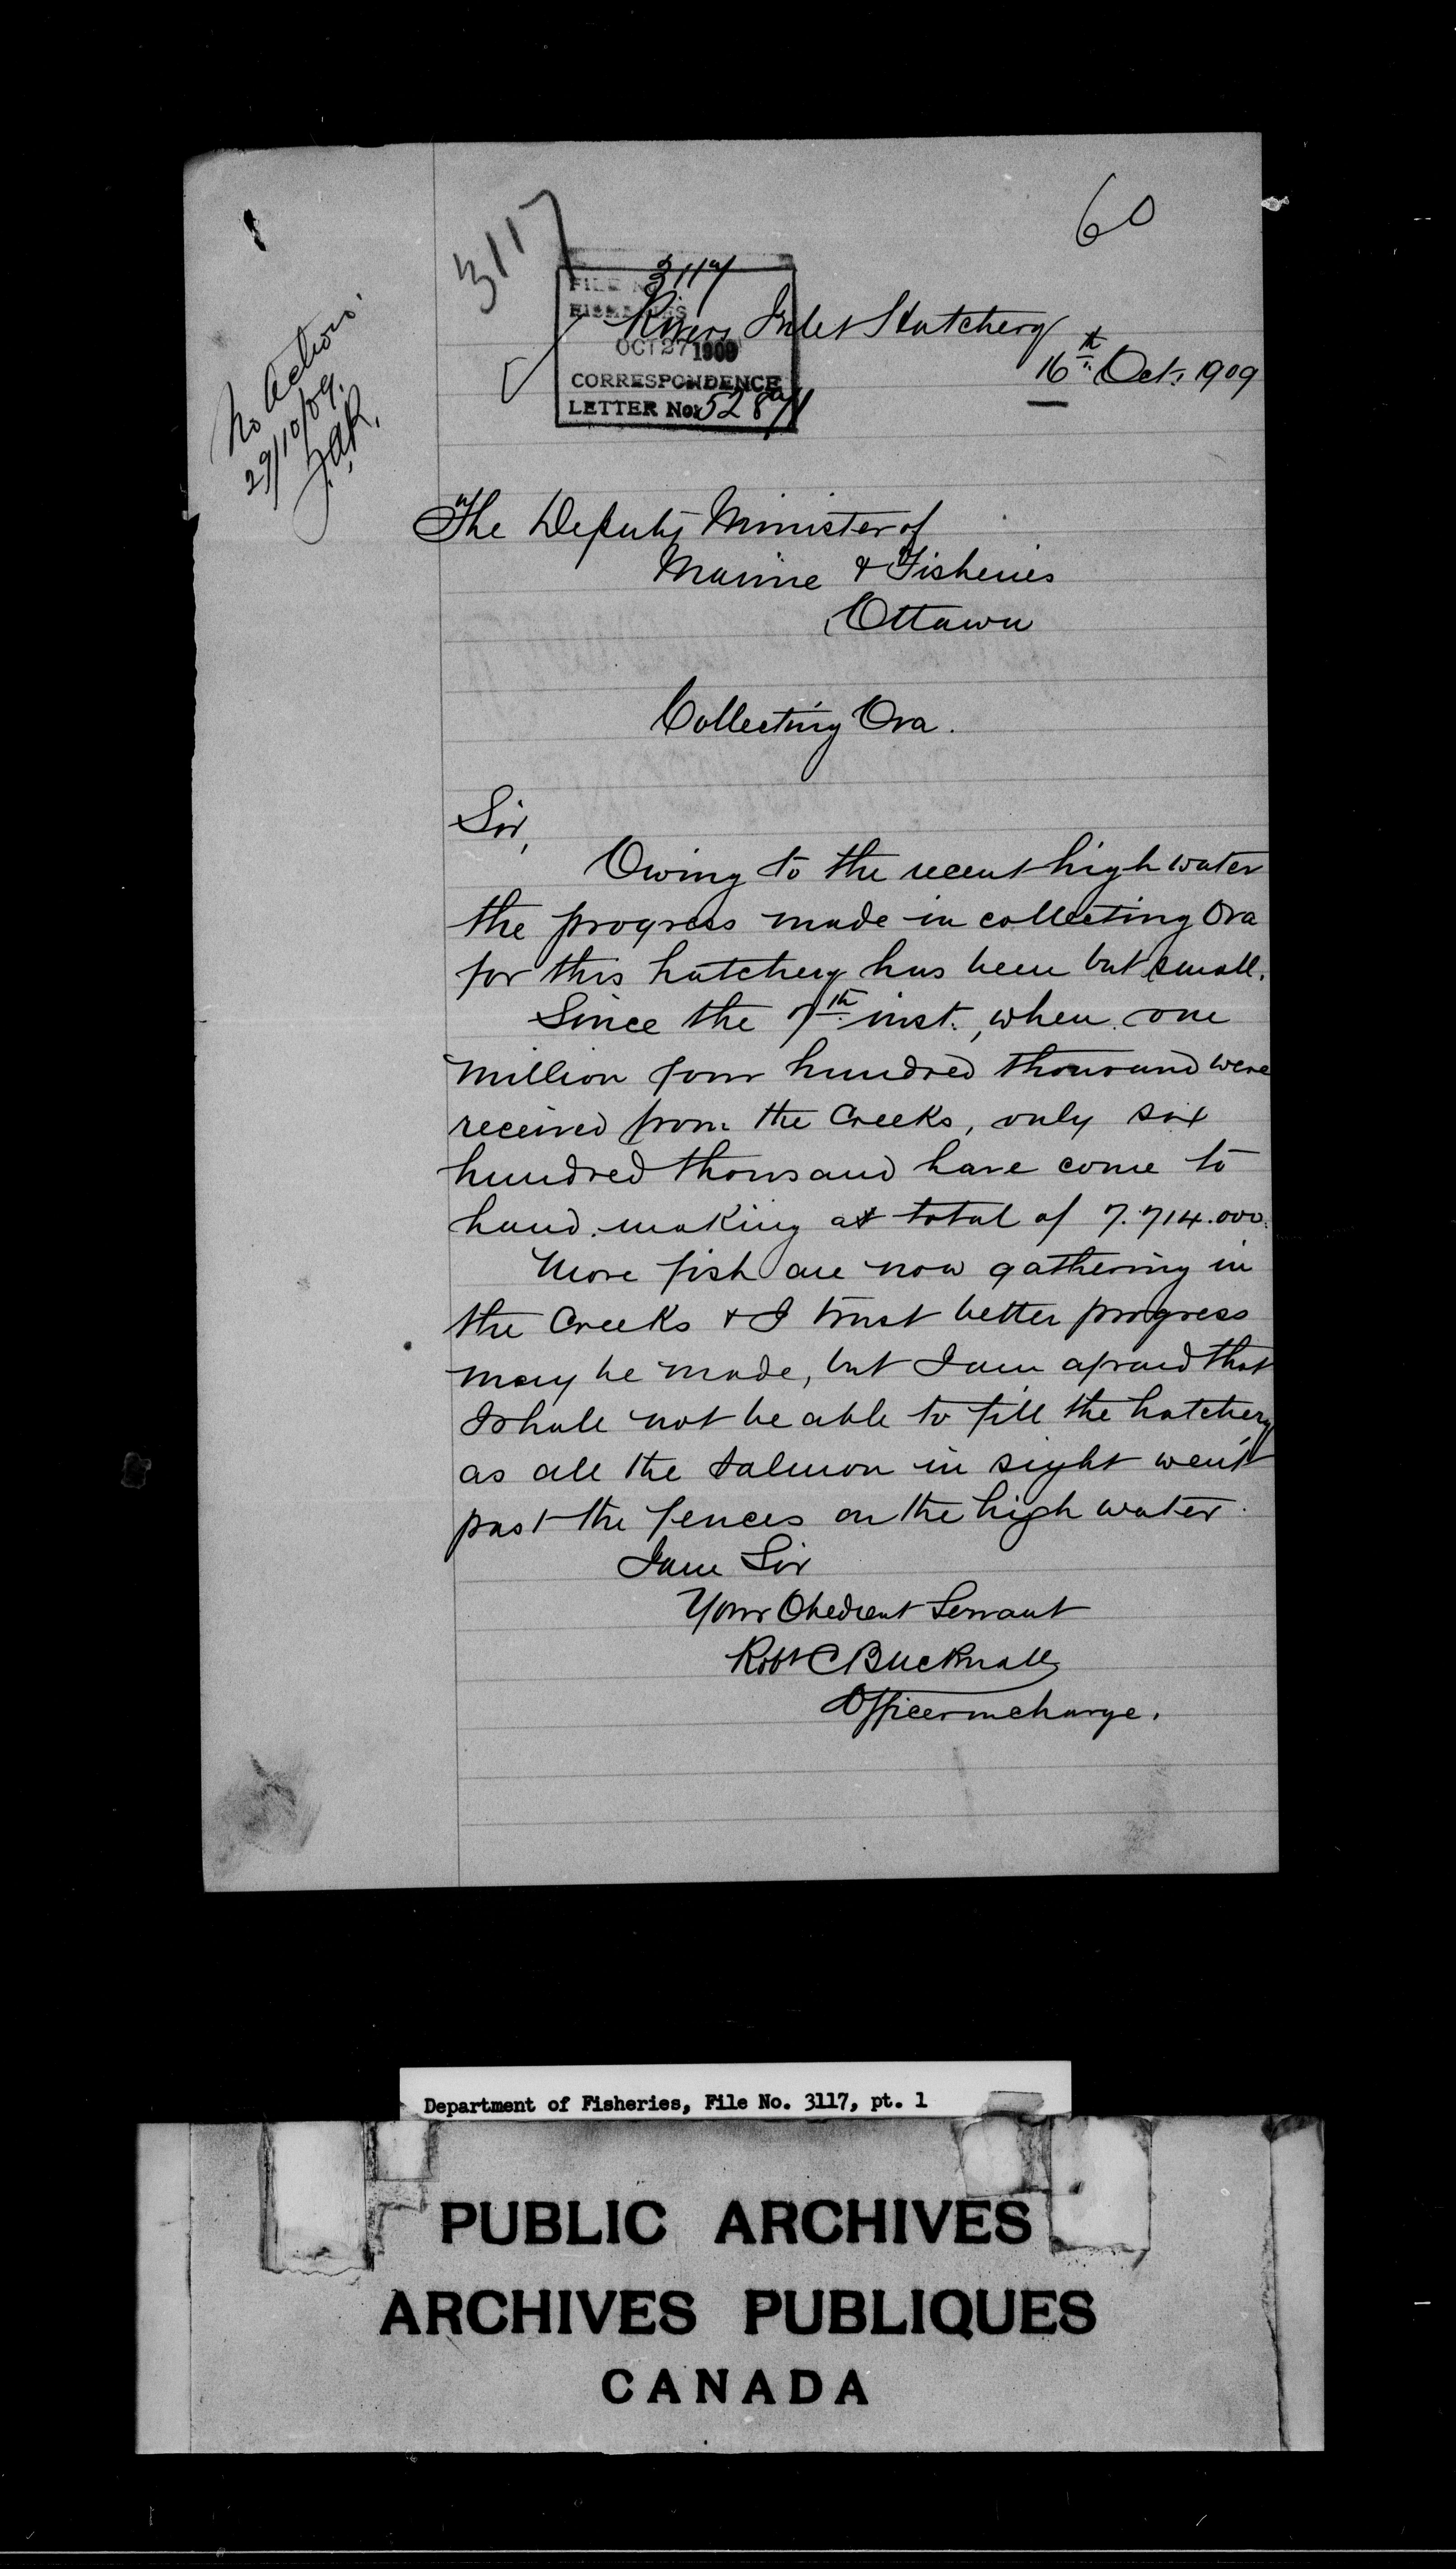 60
3117
FILE No 3117
FISHERIES
Rivers Inlet Hatchery
OCT 27 1909
16th Oct. 1909
CORRESPONDENCE
LETTER No.
No Action.
29/10/09.
The Deputy Minister of
Marine & Fisheries
Ottawa
Collecting Ova.
Sir,
Owing to the recent high water
the progress made in collecting Ova
for this hatchery has been but small.
Since the 7th inst., when one
million four hundred thousand were
received from the Creeks, only six
hundred thousand have come to
hand making at total of 7.714.000.
More fish are now gathering in
the Creeks & I trust better progress
may be made, but I am afraid that
I shall not be able to fill the hatchery
as all the salmon in sight went
past the fences on the high water.
I am Sir
Your Obedient Servant
Robt C Bucknall
Officer in charge.
Department of Fisheries, File No. 3117, pt. 1
PUBLIC ARCHIVES
ARCHIVES PUBLIQUES
CANADA